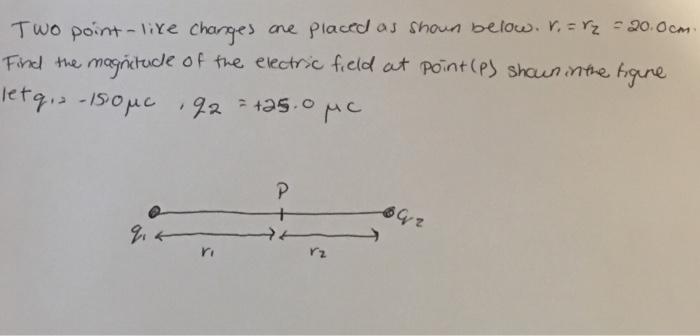 Two point-like charges are placed as shown below. r₁ = r₂ = 20.0cm.
Find the magnitude of the electric field at point (P) shown in the figure
let q₁ = -15.0 μC , q₂ = +25.0 μC
P
q₁ q₂
r₁ r₂